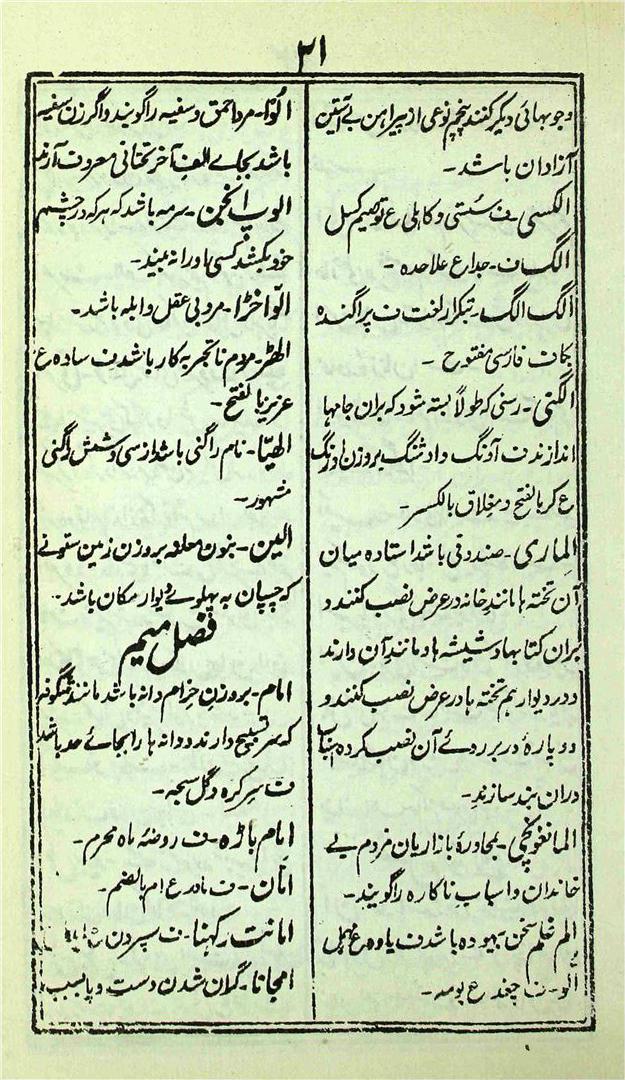 ۲۱
وجوبهائی دیگر کنند پنجم نوعی از پیراهن بے آستین
آزادان باشد۔
الکسی۔ ف سُستی و کاہلی ع توصیم کسل
الگ ف۔ جدا ع علاحدہ۔
الگ الگ۔ بتکرار لخت ف پراگندہ
بکاف فارسی مفتوح۔
الگنی۔ رسنی کہ طولاً بستہ شود کہ بران جامہا
اندازند ف آونگ و اوشنگ بروزن اورنگ
ع کر بالفتح و مغلاق بالکسر۔
الماری۔ صندوقی باشد استادہ میان
آن تختہ ہا مانند خانہ در عرض نصب کنند و
بران کتابہا و شیشہ ہا و مانند آن دارند
و در دیوار ہم تختہ ہا در عرض نصب کنند و
دو پارۂ در بر روئے آن نصب کردہ
دران بند سازند۔
المانغوچی۔ بمحاورۂ بازاریان مردم بے
خاندان و اسباب ناکارہ را گویند۔
الم غلم سخن بیہودہ باشد ف یاوہ ع
اُلّو۔ ف چغد ع بومہ۔
الوّتا۔ مرد احمق و سفیہ را گویند و اگر زن سفیہ
باشد بجاے الف آخر تحتانی معروف آرند
الوپ انجن۔ سرمہ باشد کہ ہر کہ در چشم
خود بکشد کسی او را نہ بیند۔
الّواخڑا۔ مرد بی عقل و ابلہ باشد۔
الھڑ۔ مردم ناتجربہ کار باشد ف سادہ ع
عزیز بالفتح۔
الھیّا۔ نام راگنی باشد از سی و شش راگنی
مشہور۔
الین۔ بنون معلنہ بروزن زمین ستونے
کہ چسپان بہ پہلوے دیوار مکان باشد۔
فصل میم
امام۔ بروزن حزام دانہ باشد مانند
کہ بسر تسبیح دارند و دانہ ہا را بجائے حد باشد
ف سرکرہ و گل سبحہ۔
امام باڑہ۔ ف روضۂ ماہ محرم۔
امّان۔ ف مادر ع ام بالضم۔
امانت رکھنا۔ ف سپردن
امجانا۔ گران شدن دست و پا بسبب